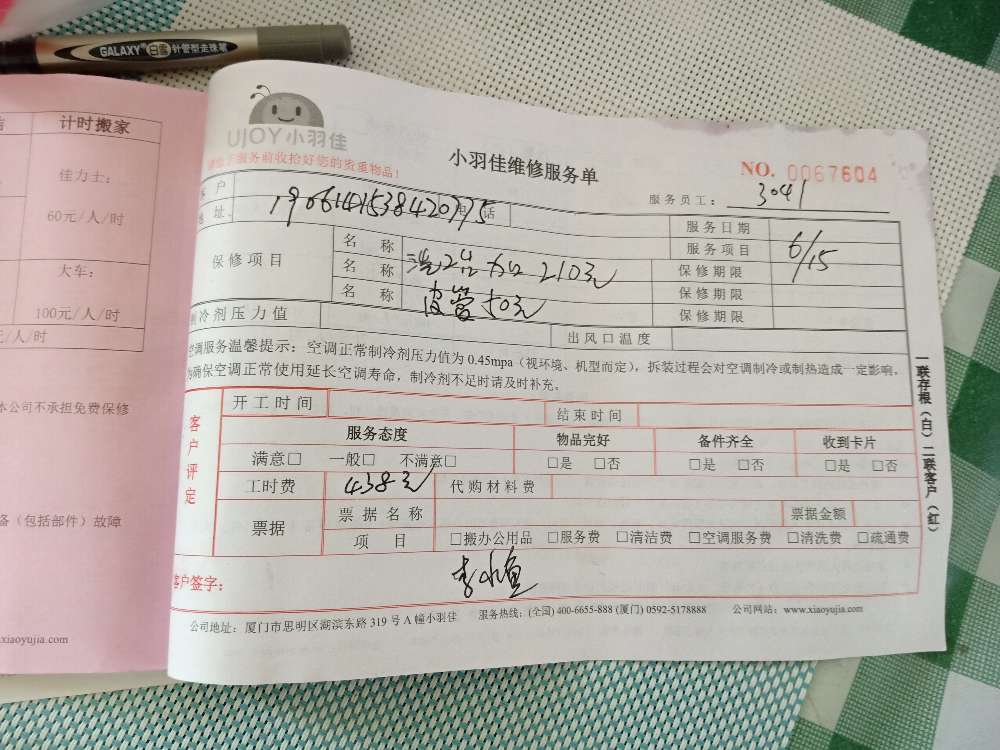 GALAXY 白雪 针管型走珠笔
计时搬家
佳力士：
60元/人/时
大车：
100元/人/时
元/人/时
本公司不承担免费保修
备（包括部件）故障
xiaoyujia.com
UJOY小羽佳
服务前收拾好您的贵重物品！
小羽佳维修服务单
NO. 0067604
服务员工： 3041
客 户
地 址 电 话
服务日期
服务项目 6/15
保修项目
名 称
名 称
名 称 皮管
保修期限
保修期限
保修期限
制冷剂压力值 出风口温度
空调服务温馨提示：空调正常制冷剂压力值为 0.45mpa（视环境、机型而定），拆装过程会对空调制冷或制热造成一定影响，
为确保空调正常使用延长空调寿命，制冷剂不足时请及时补充。
客户评定
开工时间 结束时间
服务态度 物品完好 备件齐全 收到卡片
满意□ 一般□ 不满意□ □是 □否 □是 □否 □是 □否
工时费 438元 代购材料费
票据 票据名称 票据金额
项 目 □搬办公用品 □服务费 □清洁费 □空调服务费 □清洗费 □疏通费
客户签字：
公司地址：厦门市思明区湖滨东路 319 号 A 幢小羽佳 服务热线：(全国) 400-6655-888 (厦门) 0592-5178888 公司网站：www.xiaoyujia.com
一联存根（白）二联客户（红）